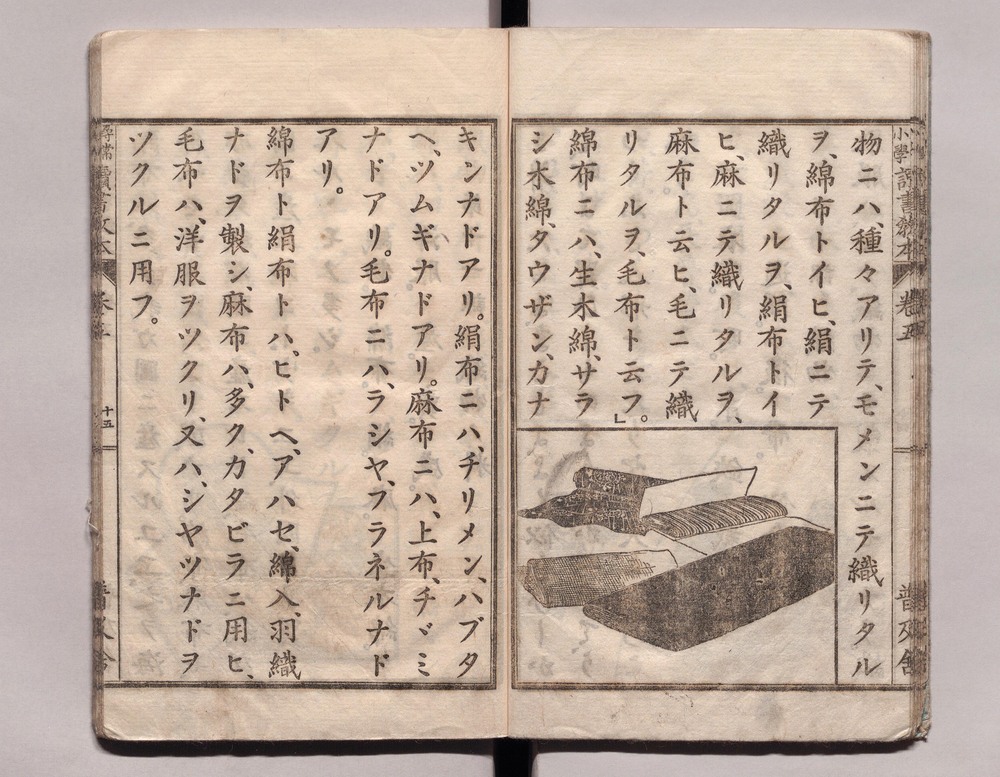 物ニハ、種々アリテ、モメンニテ織リタル
ヲ、綿布トイヒ、絹ニテ
織リタルヲ、絹布トイ
ヒ、麻ニテ織リタルヲ、
麻布ト云ヒ、毛ニテ織
リタルヲ、毛布ト云フ。」
綿布ニハ、生木綿、サラ
シ木綿、タウザン、カナ
キンナドアリ。絹布ニハ、チリメン、ハブタ
ヘ、ツムギナドアリ。麻布ニハ、上布、チヾミ
ナドアリ。毛布ニハ、ラシヤ、フラネルナド
アリ。
綿布ト絹布トハ、ヒトヘ、アハセ、綿入、羽織
ナドヲ製シ、麻布ハ、多ク、カタビラニ用ヒ、
毛布ハ、洋服ヲツクリ、又ハ、シヤツナドヲ
ツクルニ用フ。
小學讀書教本
卷五
普及舍
十五